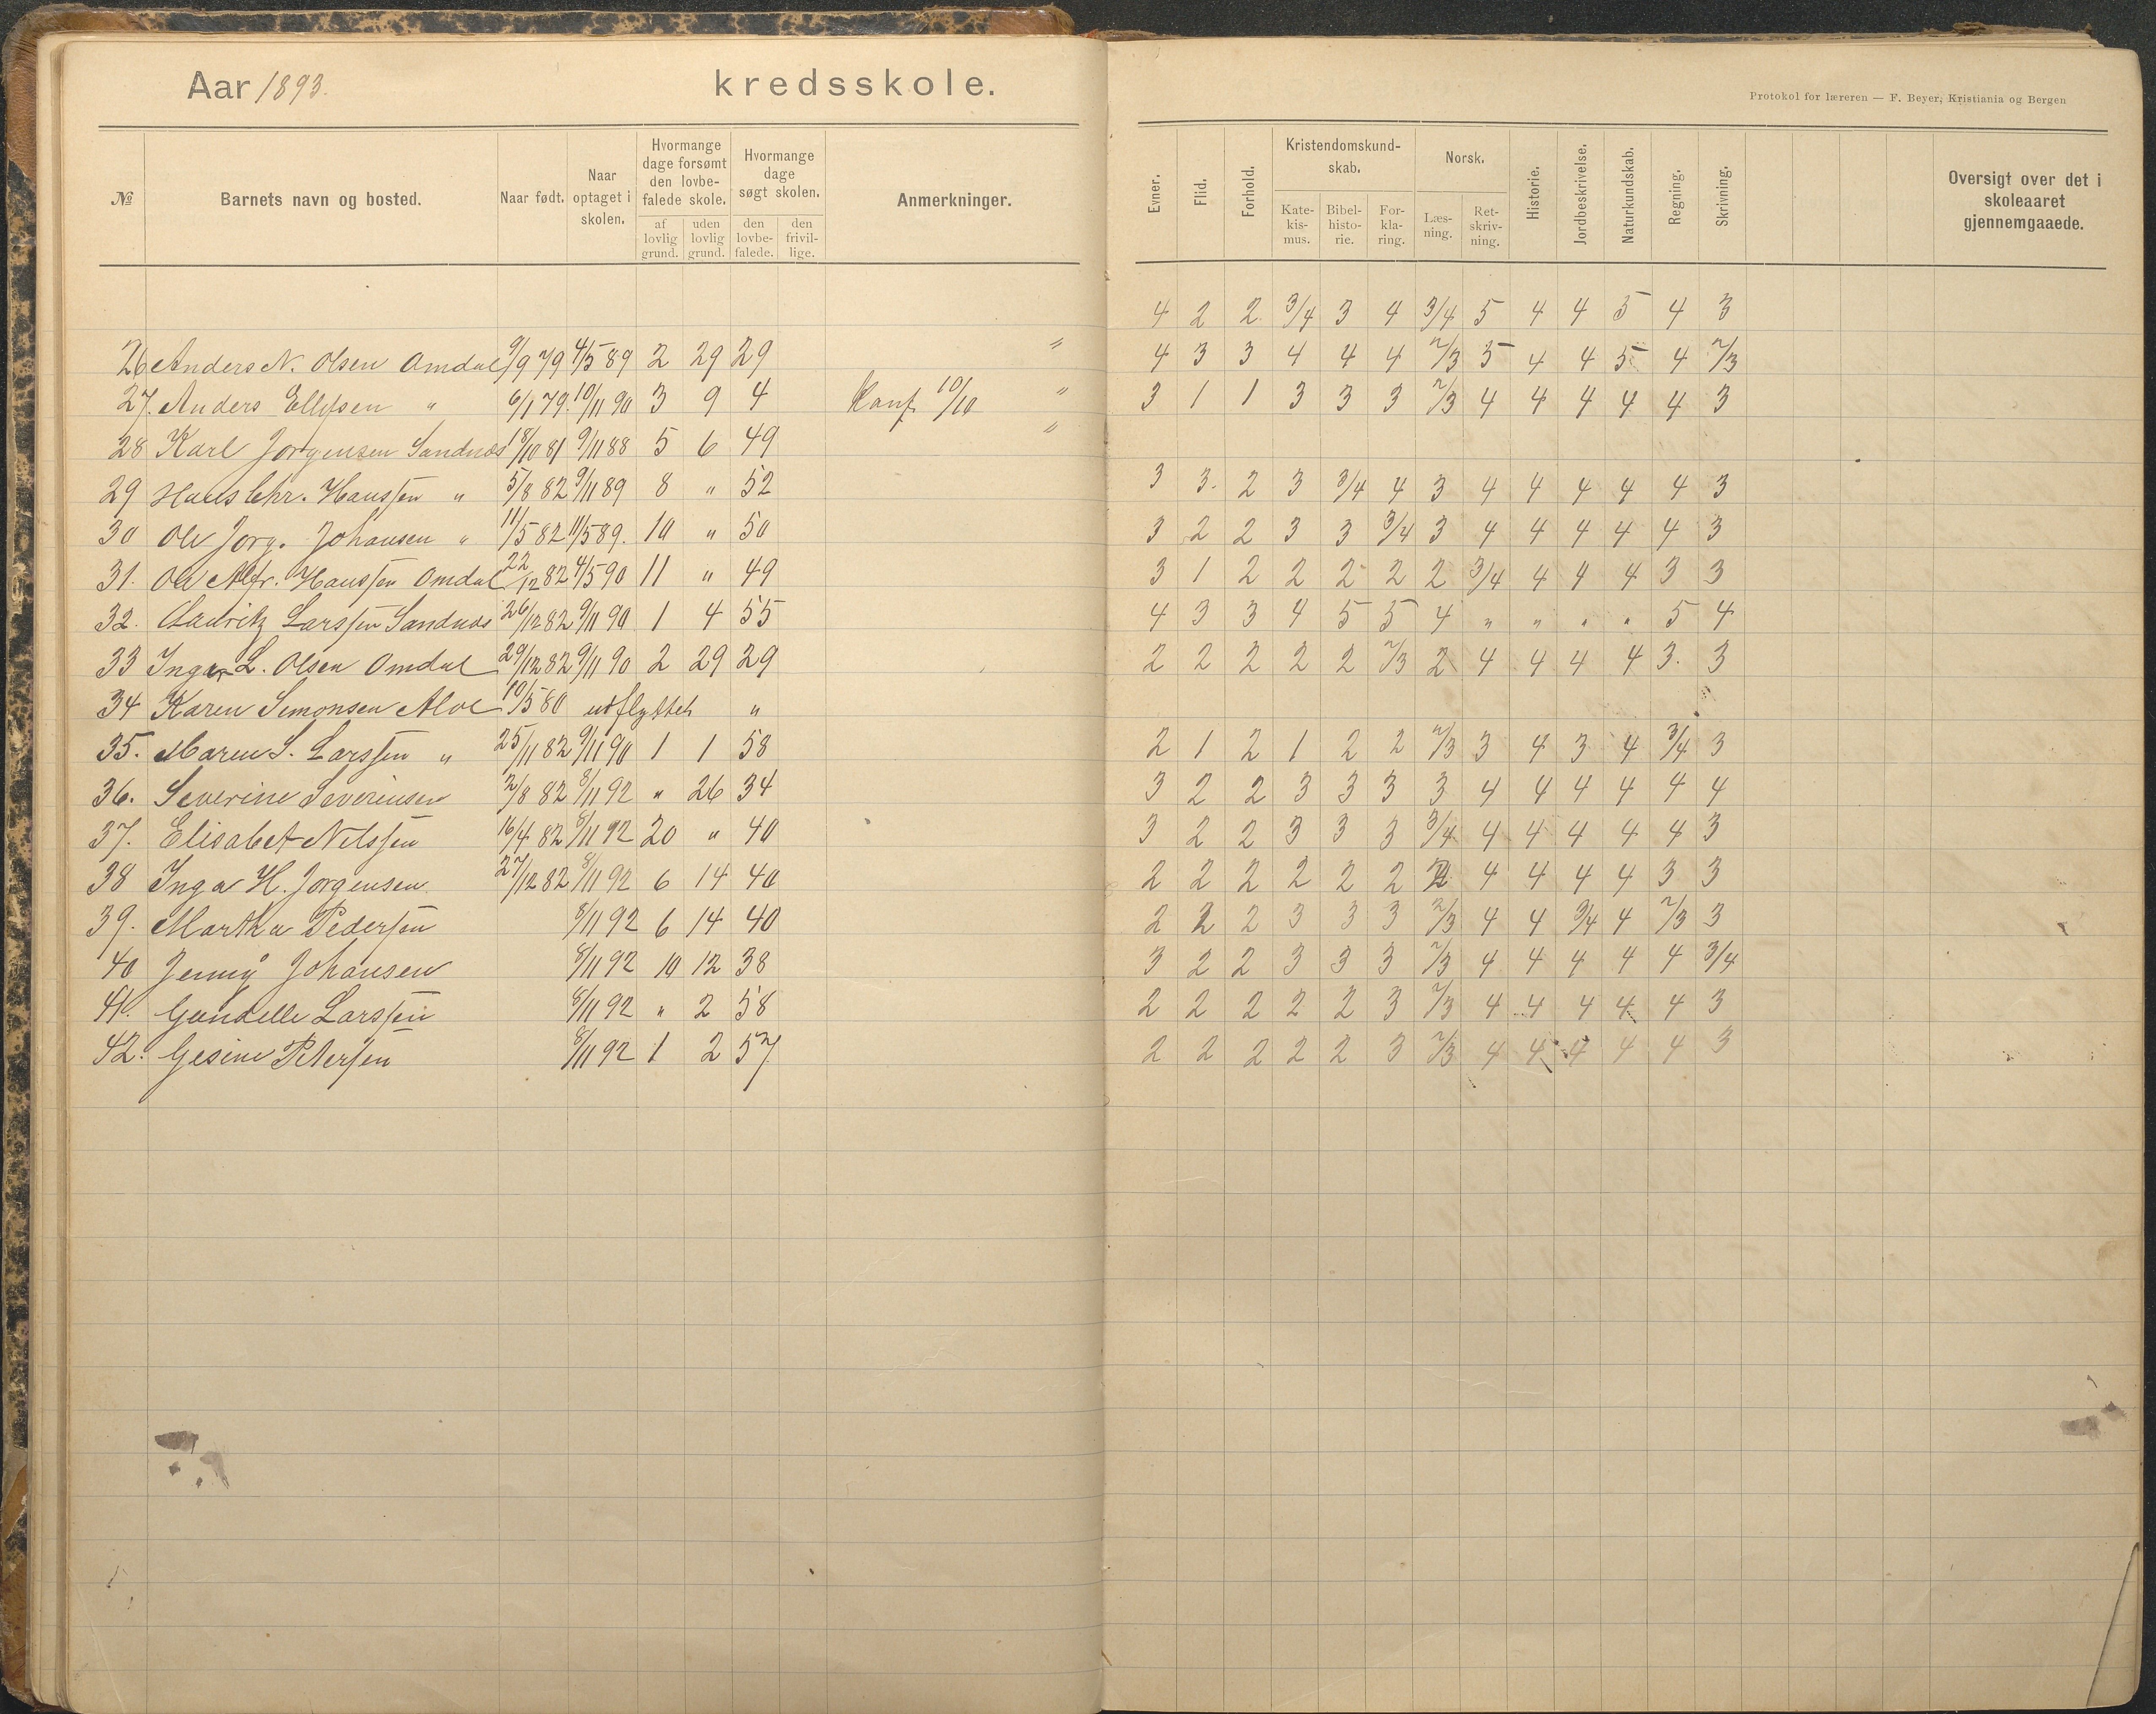 Aar 1893.
kredsskole.
№
Barnets navn og bosted.
Naar født.
Naar optaget i skolen.
Hvormange dage forsømt den lovbefalede skole.
af lovlig grund.
uden lovlig grund.
Hvormange dage søgt skolen.
den lovbefalede.
den frivillige.
Anmerkninger.
26 Anders N. Olsen Omdal 9/9 79 4/5 89 2 29 29 "
27. Anders Ellefsen " 6/1 79. 10/11 90 3 9 4 Konf. 10/10 "
28 Karl Jørgensen Sandnæs 18/10 81 9/11 88 5 6 49 "
29 Hans Chr. Hanssen " 5/8 82 9/11 89 8 " 52
30 Ole Jørg. Johansen " 11/5 82 11/5 89. 10 " 50
31. Ole Alfr. Hanssen Omdal 22/12 82 4/5 90 11 " 49
32. Lauritz Larssen Sandnæs 26/12 82 9/11 90 1 4 55
33 Inger L. Olsen Omdal 29/12 82 9/11 90 2 29 29
34 Karen Simonsen Aloe 10/5 80 utflyttet "
35. Maren S. Larssen " 25/11 82 9/11 90 1 1 58
36. Severine Severinsen 2/8 82 8/11 92 " 26 34
37. Elisabet Nilssen 16/4 82 8/11 92 20 " 40
38 Inga H. Jørgensen 27/12 82 8/11 92 6 14 40
39. Martha Pedersen 8/11 92 6 14 40
40 Jenny Johansen 8/11 92 10 12 38
41. Gundelle Larssen 8/11 92 " 2 58
42. Gesine Petersen 8/11 92 1 2 57
Protokol for læreren — F. Beyer, Kristiania og Bergen
Evner.
Flid.
Forhold.
Kristendomskundskab.
Katekismus.
Bibelhistorie.
Forklaring.
Norsk.
Læsning.
Retskrivning.
Historie.
Jordbeskrivelse.
Naturkundskab.
Regning.
Skrivning.
Oversigt over det i skoleaaret gjennemgaaede.
4 2 2. 3/4 3 4 3/4 5 4 4 5 4 3
4 3 3 4 4 4 2/3 5 4 4 5 4 2/3
3 1 1 3 3 3 2/3 4 4 4 4 4 3
3 3. 2 3 3/4 4 3 4 4 4 4 4 3
3 2 2 3 3 3/4 3 4 4 4 4 4 3
3 1 2 2 2 2 2 3/4 4 4 4 3 3
4 3 3 4 5 5 4 " " " " 5 4
2 2 2 2 2 2/3 2 4 4 4 4 3. 3
2 1 2 1 2 2 2/3 3 4 3 4 3/4 3
3 2 2 3 3 3 3 4 4 4 4 4 4
3 2 2 3 3 3 3/4 4 4 4 4 4 3
2 2 2 2 2 2 2 4 4 4 4 3 3
2 2 2 3 3 3 2/3 4 4 3/4 4 2/3 3
3 2 2 3 3 3 2/3 4 4 4 4 4 3/4
2 2 2 2 2 3 2/3 4 4 4 4 4 3
2 2 2 2 2 3 2/3 4 4 4 4 4 3